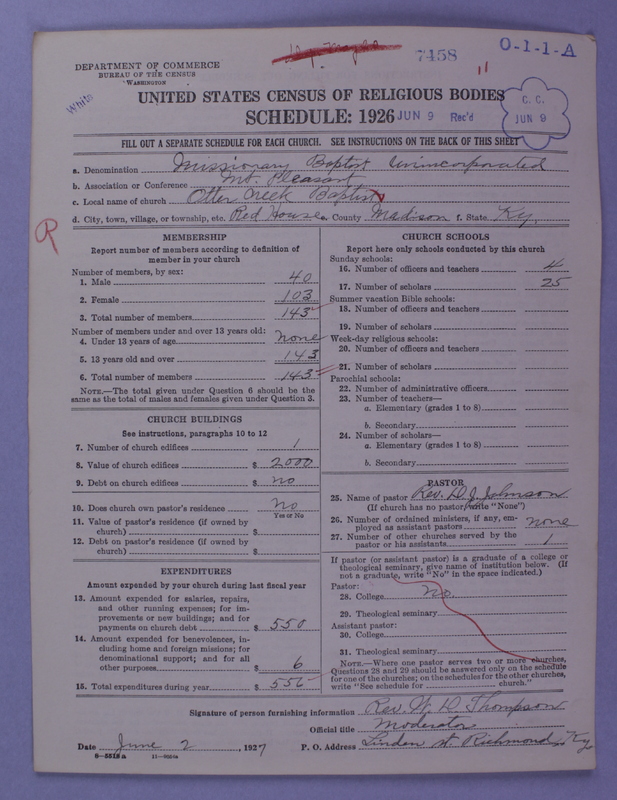 7458
O-1-1-A
DEPARTMENT OF COMMERCE
BUREAU OF THE CENSUS
WASHINGTON
White
UNITED STATES CENSUS OF RELIGIOUS BODIES
SCHEDULE: 1926
JUN 9 Rec'd
C. C.
JUN 9
FILL OUT A SEPARATE SCHEDULE FOR EACH CHURCH. SEE INSTRUCTIONS ON THE BACK OF THIS SHEET
a. Denomination Missionary Baptist Unincorporated
b. Association or Conference Mt. Pleasant
c. Local name of church Otter Creek Baptist
d. City, town, village, or township, etc. Red House e. County Madison f. State Ky.
R
MEMBERSHIP
Report number of members according to definition of
member in your church
Number of members, by sex:
1. Male 40
2. Female 103
3. Total number of members 143
Number of members under and over 13 years old:
4. Under 13 years of age None
5. 13 years old and over 143
6. Total number of members 143
NOTE.—The total given under Question 6 should be the
same as the total of males and females given under Question 3.
CHURCH BUILDINGS
See instructions, paragraphs 10 to 12
7. Number of church edifices 1
8. Value of church edifices $ 2000
9. Debt on church edifices $ No
10. Does church own pastor's residence No
Yes or No
11. Value of pastor's residence (if owned by
church) $
12. Debt on pastor's residence (if owned by
church) $
EXPENDITURES
Amount expended by your church during last fiscal year
13. Amount expended for salaries, repairs,
and other running expenses; for im-
provements or new buildings; and for
payments on church debt $ 550
14. Amount expended for benevolences, in-
cluding home and foreign missions; for
denominational support; and for all
other purposes $ 6
15. Total expenditures during year $ 556
CHURCH SCHOOLS
Report here only schools conducted by this church
Sunday schools:
16. Number of officers and teachers 4
17. Number of scholars 25
Summer vacation Bible schools:
18. Number of officers and teachers
19. Number of scholars
Week-day religious schools:
20. Number of officers and teachers
21. Number of scholars
Parochial schools:
22. Number of administrative officers
23. Number of teachers—
a. Elementary (grades 1 to 8)
b. Secondary
24. Number of scholars—
a. Elementary (grades 1 to 8)
b. Secondary
PASTOR
25. Name of pastor Rev. D. J. Johnson
(If church has no pastor, write "None")
26. Number of ordained ministers, if any, em-
ployed as assistant pastors none
27. Number of other churches served by the
pastor or his assistants 1
If pastor (or assistant pastor) is a graduate of a college or
theological seminary, give name of institution below. (If
not a graduate, write "No" in the space indicated.)
Pastor:
28. College No
29. Theological seminary
Assistant pastor:
30. College
31. Theological seminary
NOTE.—Where one pastor serves two or more churches,
Questions 28 and 29 should be answered only on the schedule
for one of the churches; on the schedules for the other churches,
write "See schedule for church."
Signature of person furnishing information Rev. W. D Thompson
Official title Moderator
Date June 2, 1927 P. O. Address Linden st. Richmond, Ky
8-5513a